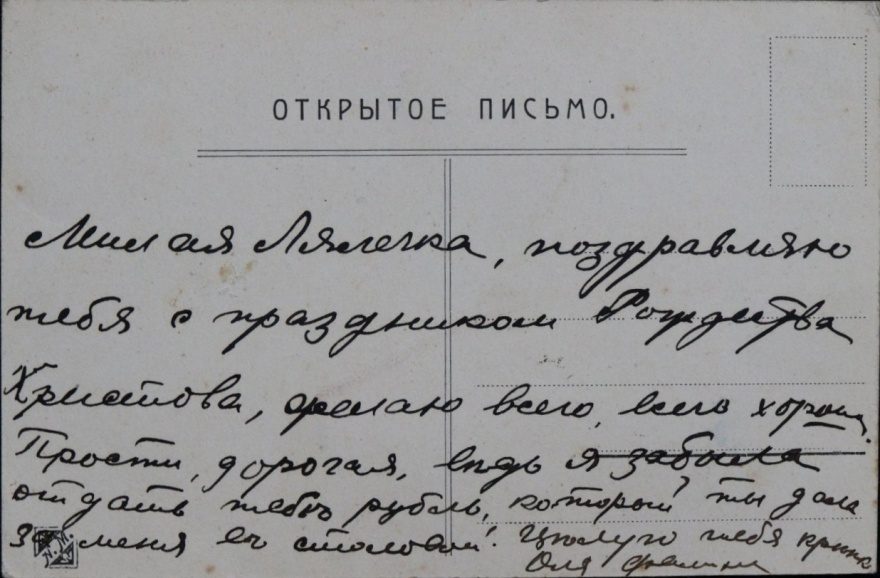 ОТКРЫТОЕ ПИСЬМО.
Милая Лялечка, поздравляю
тебя с праздником Рождества
Христова, желаю всего, всего хорош.
Прости, дорогая, ведь я забыла
отдать тебѣ рубль, который ты дала
за меня въ столовой! Цѣлую тебя крѣпк
Оля